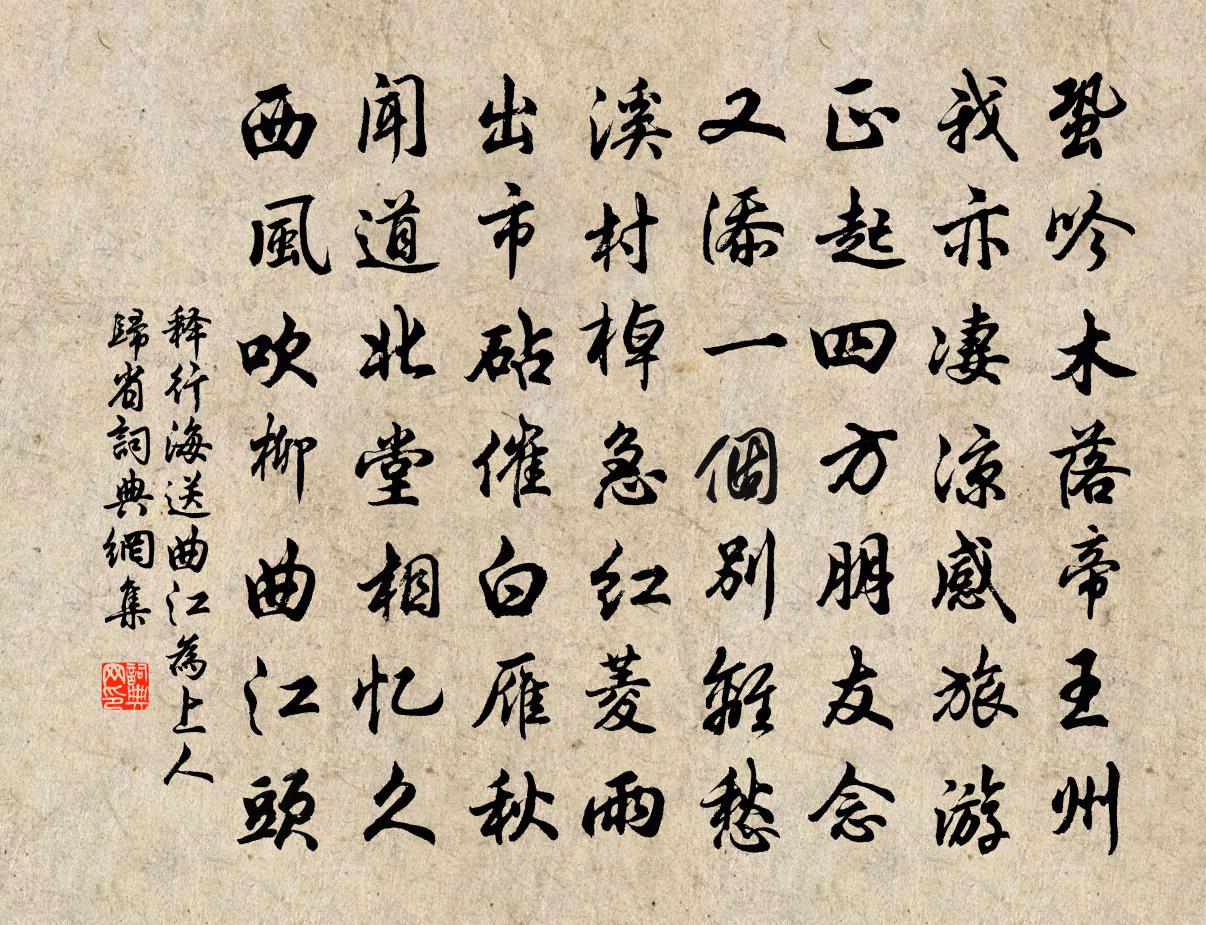 蛩吟木落帝王州
我亦凄凉感旅游
正起四方朋友念
又添一個别離愁
溪村棹急红菱雨
出市砧催白雁秋
闻道北堂相忆久
西風吹柳曲江頭
释行海送曲江為上人
歸省詞典網集
詞典网印